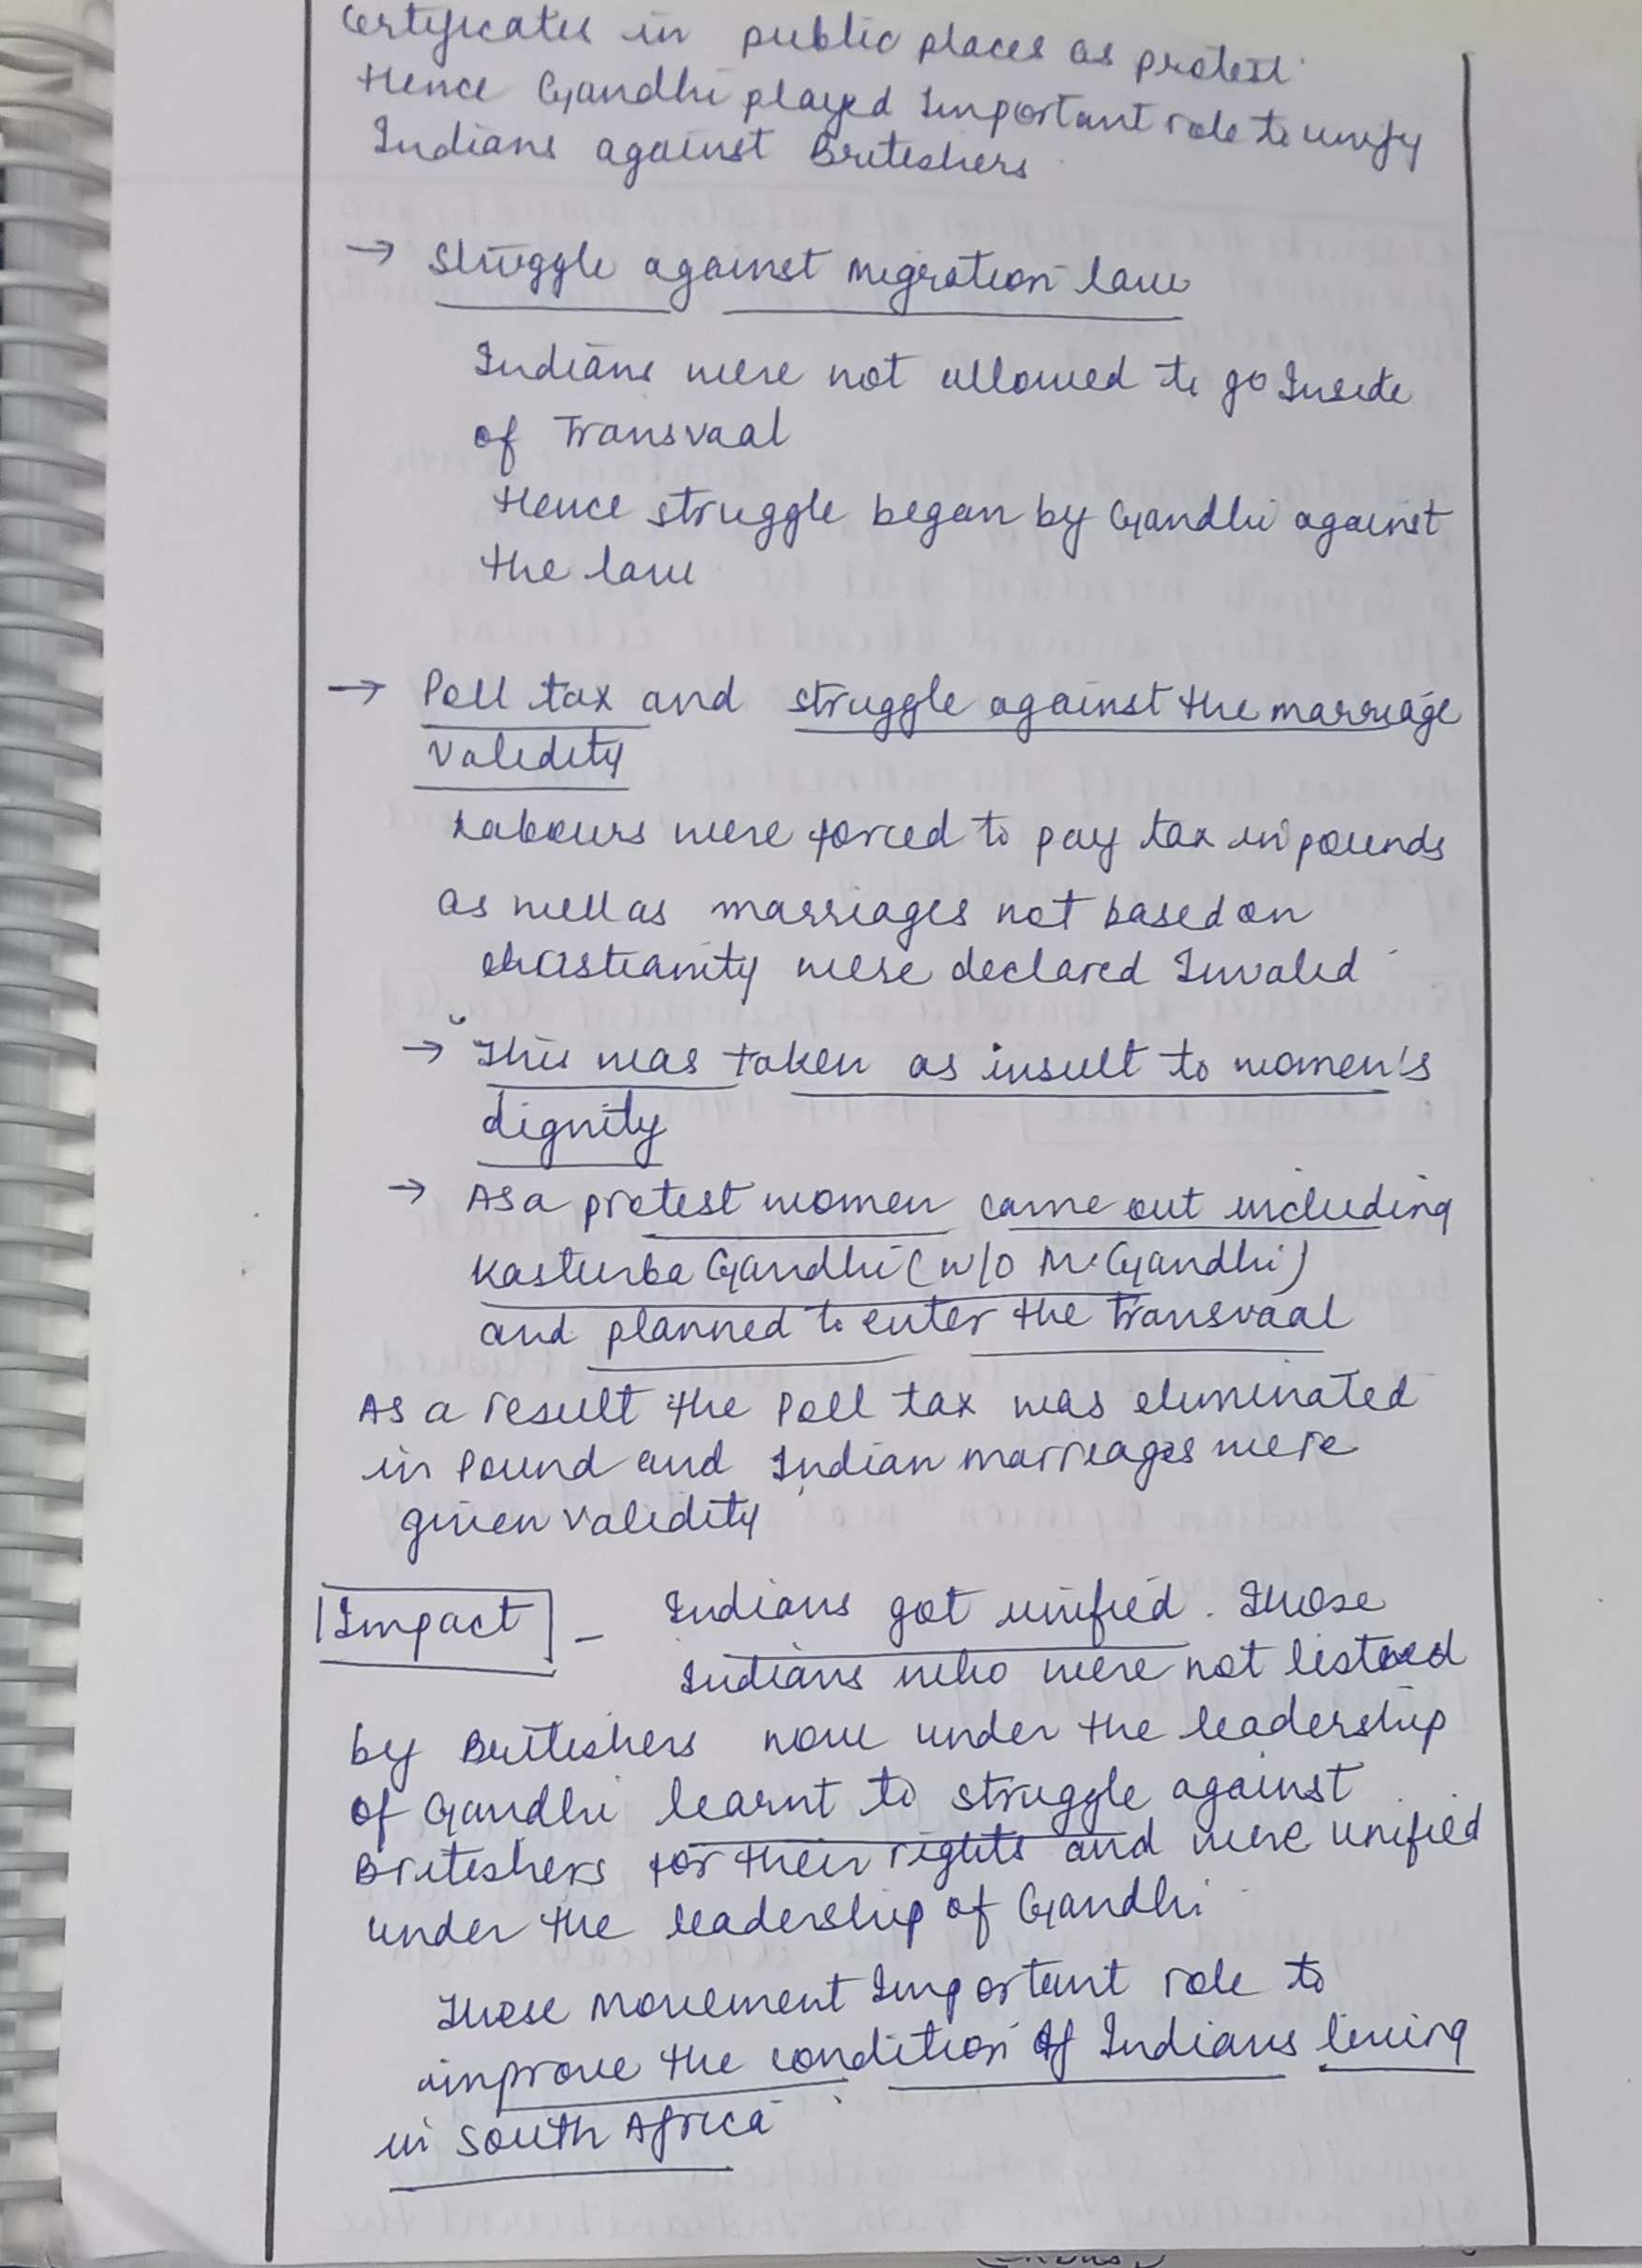 Certificates in public places as protest.
Hence Gandhi played Important role to unify
Indians against Britishers
→ Struggle against Migration law
Indians were not allowed to go Inside
of Transvaal
Hence struggle began by Gandhi against
the law
→ Poll tax and struggle against the marriage
validity
Labours were forced to pay tax in pounds
as well as marriages not based on
christianity were declared Invalid
→ This was taken as insult to women's
dignity
→ As a protest women came out including
Kasturba Gandhi (w/o Mr. Gandhi)
and planned to enter the Transvaal
As a result the Poll tax was eliminated
in Pound and Indian marriages were
given validity
Impact - Indians got unified. Those
Indians who were not listened
by Britishers now under the leadership
of Gandhi learnt to struggle against
Britishers for their rights and were unified
under the leadership of Gandhi.
These Movement Important role to
improve the condition of Indians living
in South Africa